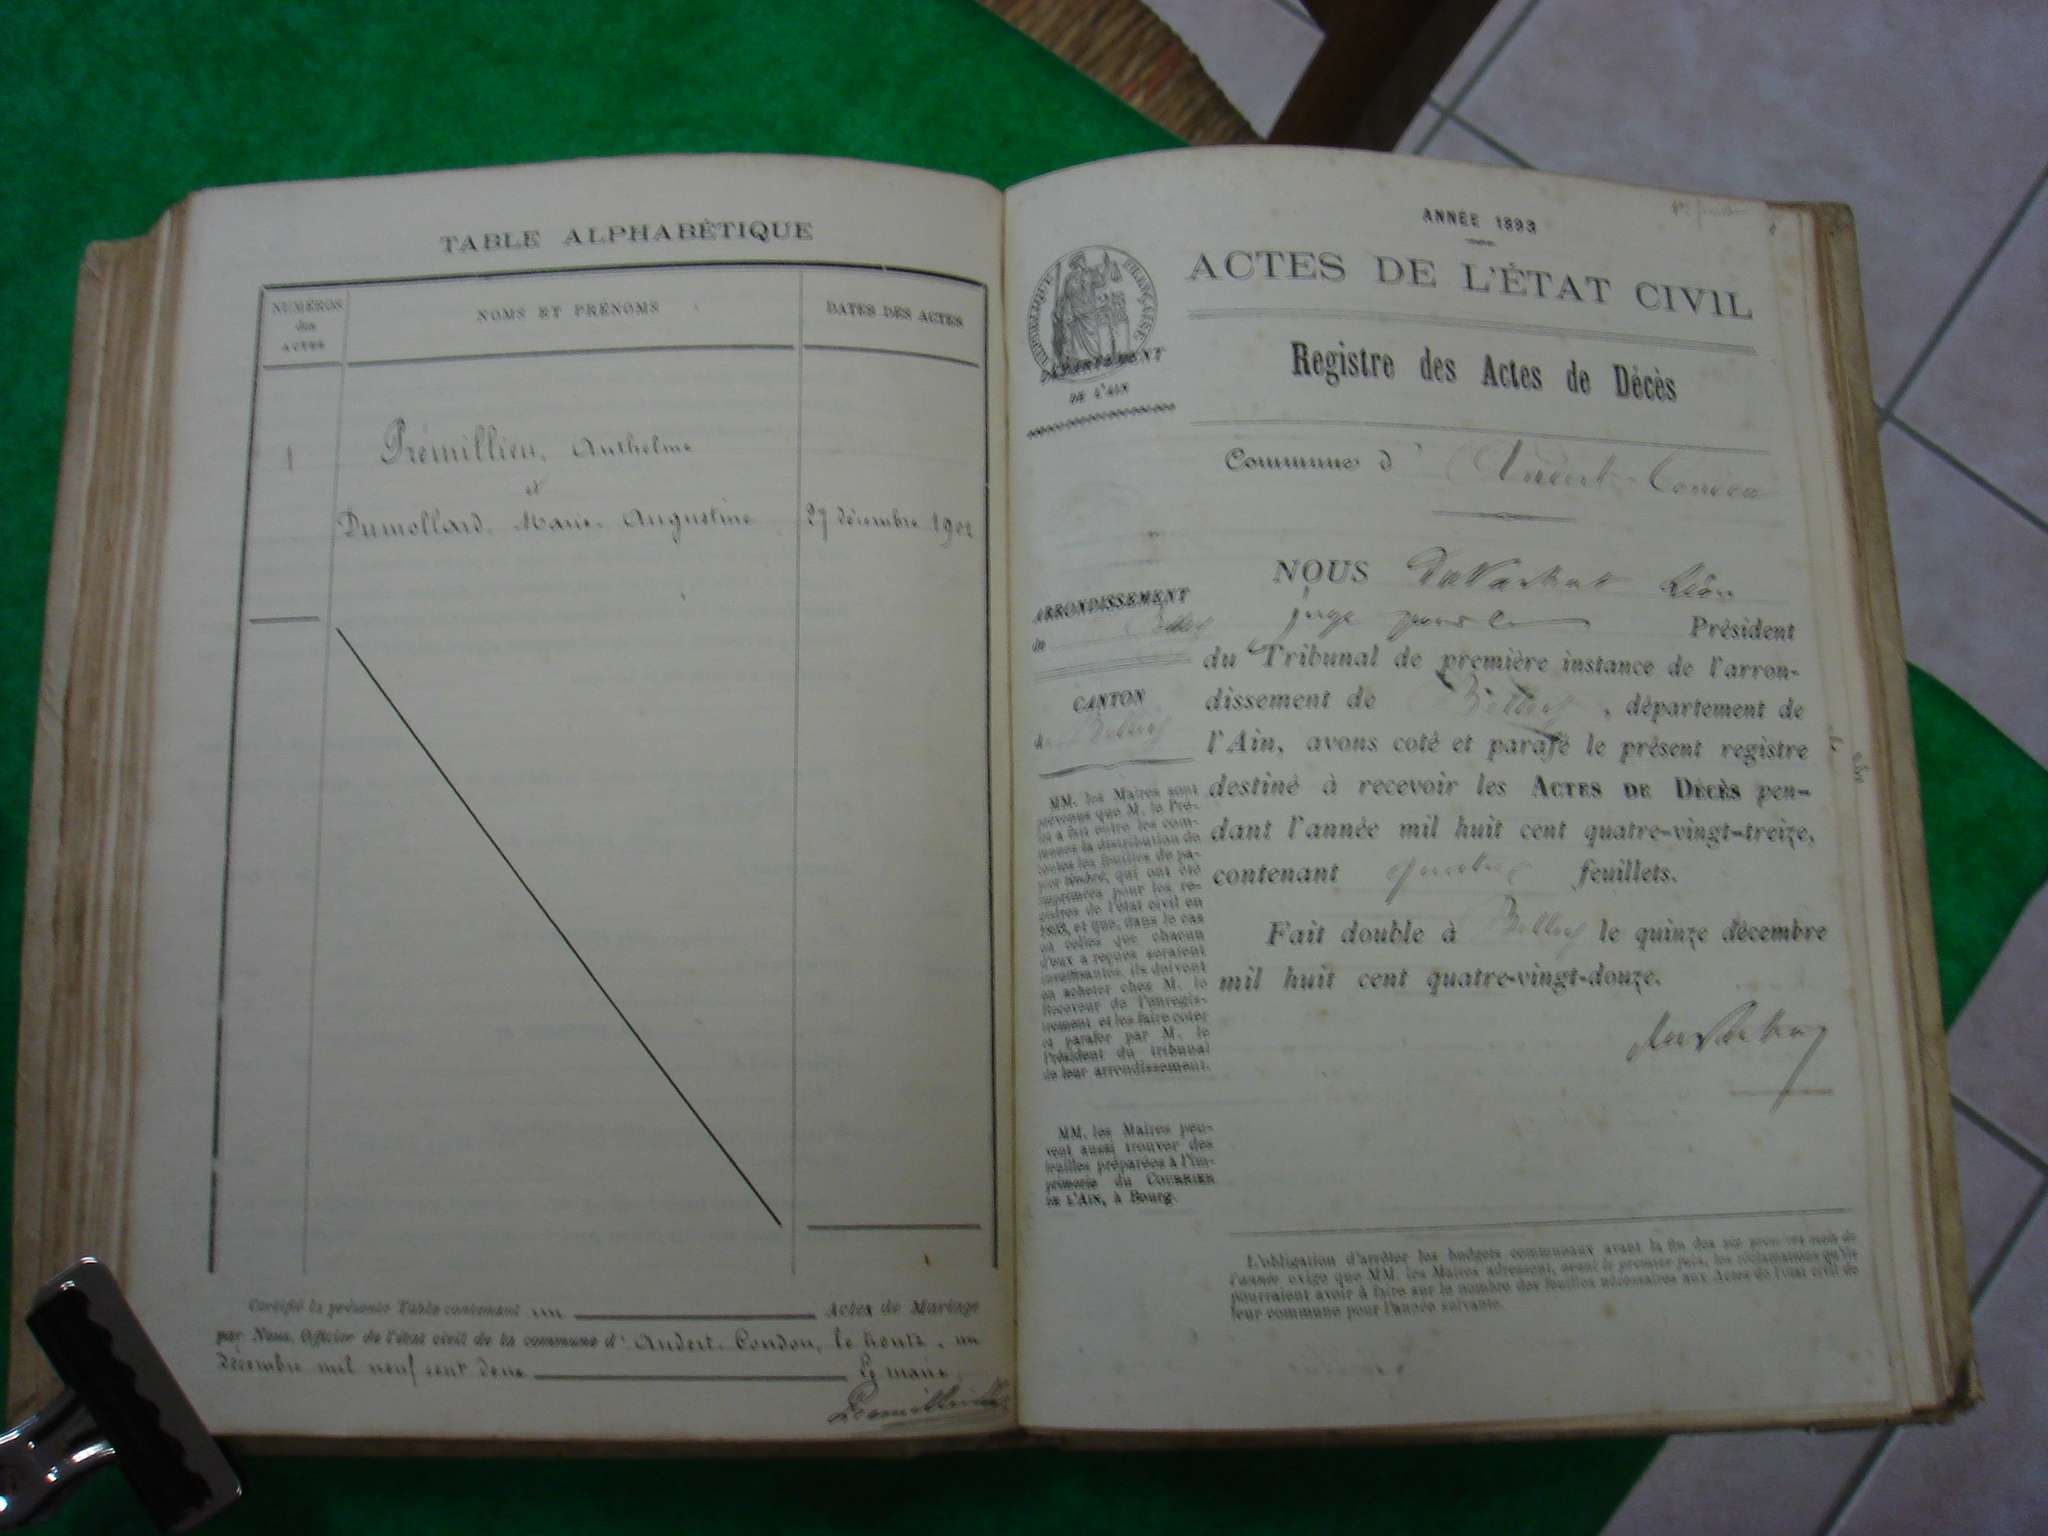 TABLE ALPHABÉTIQUE
NUMÉROS
des
ACTES
NOMS ET PRÉNOMS
DATES DES ACTES
1
Prémillieu, Anthelme
et
Dumollard, Marie-Augustine
27 décembre 1902
Certifié la présente Table contenant un Actes de Mariage
par Nous, Officier de l'état civil de la commune d' Andert-Condon, le trente-un
Décembre mil neuf cent deux Le maire,
ANNÉE 1893
ACTES DE L'ÉTAT CIVIL
RÉPUBLIQUE FRANÇAISE
DÉPARTEMENT
DE L'AIN
Registre des Actes de Décès
Commune d' Andert-Condon
ARRONDISSEMENT
de Belley
CANTON
de Belley
MM. les Maires sont
prévenus que M. le Pré-
fet a fait entre les com-
munes la distribution de
toutes les feuilles de pa-
pier timbré, qui ont été
imprimées pour les re-
gistres de l'état civil en
1893, et que, dans le cas
où celles que chacun
d'eux a reçues seraient
insuffisantes, ils doivent
en acheter chez M. le
Receveur de l'enregis-
trement et les faire coter
et parafer par M. le
Président du tribunal
de leur arrondissement.
MM. les Maires peu-
vent aussi trouver des
feuilles préparées à l'im-
primerie du COURRIER
DE L'AIN, à Bourg.
NOUS Léon
juge pour le Président
du Tribunal de première instance de l'arron-
dissement de Belley, département de
l'Ain, avons coté et parafé le présent registre
destiné à recevoir les ACTES DE DÉCÈS pen-
dant l'année mil huit cent quatre-vingt-treize,
contenant quatre feuillets.
Fait double à Belley le quinze décembre
mil huit cent quatre-vingt-douze.
L'obligation d'arrêter les budgets communaux avant la fin des six premiers mois de
l'année exige que MM. les Maires adressent, avant le premier juin, les réclamations qu'ils
pourraient avoir à faire sur le nombre des feuilles nécessaires aux Actes de l'état civil de
leur commune pour l'année suivante.